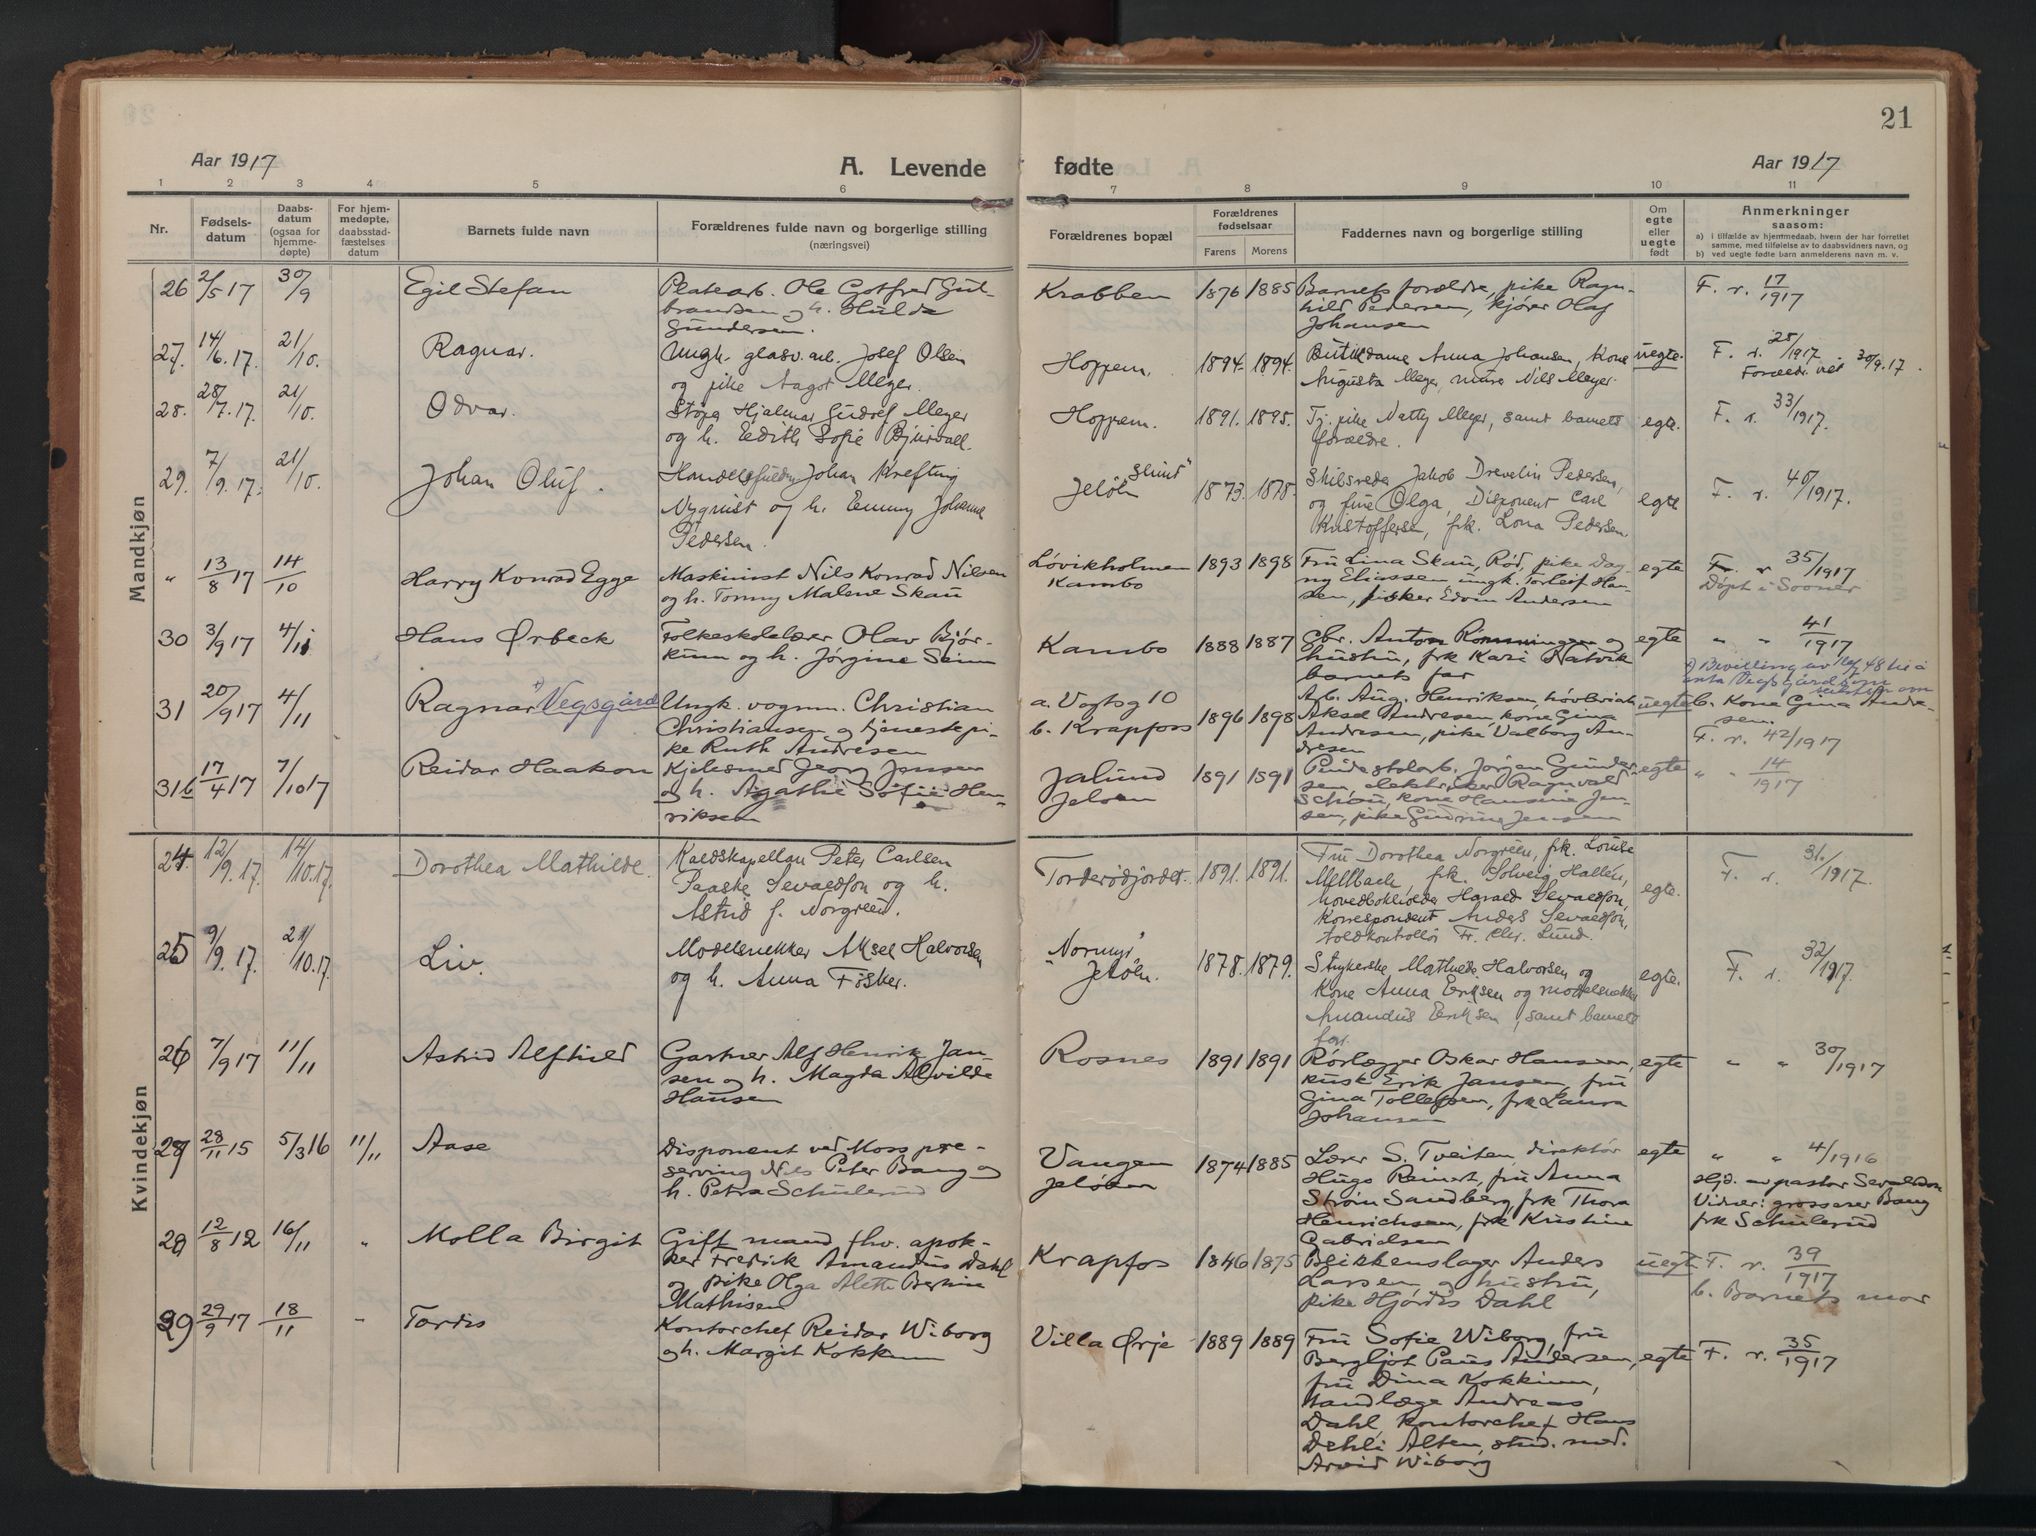 21
Aar 1917
A. Levende fødte
Aar 1917
1 2 3 4 5 6 7 8 9 10 11
Nr.
Fødsels-
datum
Daabs-
datum
(ogsaa for
hjemme-
døpte)
For hjem-
medøpte,
daabsstad-
fæstelses
datum
Barnets fulde navn
Forældrenes fulde navn og borgerlige stilling
(næringsvei)
Forældrenes bopæl
Forældrenes
fødselsaar
Farens Morens
Faddernes navn og borgerlige stilling
Om
egte
eller
uegte
født
Anmerkninger
saasom:
a) i tilfælde av hjemmedaab, hvem der har forrettet
samme, med tilføielse av to daabsvidners navn, og
b) ved uegte fødte barn anmelderens navn m. v.
Mandkjøn
26 2/5 17 30/9 Egil Stefan
Platearb. Ole Gotfred Gul-
brandsen og h. Hulda
Gundersen.
Krabben 1876 1885
Barnets forældre, pike Ragn-
hild Pedersen, kjører Olaf
Johansen
F. r. 17/1917
27. 14/6. 17. 21/10. Ragnar.
Ungk. glasv. arb. Josef Olsen
og pike Aagot Meyer.
Hoppern. 1894. 1894.
Anna Johansen, Kone
Augusta Meyer, murer Nils Meyer.
uegte.
F. r. 25/1917
Forældr. viet 30/9.17.
28. 28/7. 17. 21/10. Odvar.
Hjalmar Gudolf Meyer
og h. Edith Sofie
Hoppern. 1891. 1895.
Tj. pike Natty Meyer, samt barnets
forældre.
egte.
F. r. 33/1917.
29. 7/9. 17. 21/10. Johan Oluf.
Johan Krefting
Nyquist og h. Emmy Johanne
Pedersen.
Jeløen 1873. 1878.
Skibsreder Jakob Drevelin Pedersen,
og frue Olga, Disponent Carl
Kristoffersen, frk. Lona Pedersen
egte
F. r. 40/1917.
" 13/8 17 14/10 Harry Konrad Egge
Maskinist Nils Konrad Nilsen
og h. Tonny Malene Skau
Løvikholmen
Kambo
1893 1898
Fru Lina Skau, Rød, pike Dag-
ny Eliassen ungk. Torleif Han-
sen, fisker Edvin Andersen
egte
F. r 35/1917
Døpt i Sooner
30 3/9 17 4/11 Hans Ørbeck
Folkeskolelærer Olav Bjør-
kum og h. Jørgine Seim
Kambo 1888 1887
Gbr. Anton Rønningen og
hustru, frk Kari Natvik
barnets far
egte
" " 41/1917
31 20/9 17 4/11 Ragnar x) Vegsgård
Ungk. vognm. Christian
Christiansen og tjenestepi-
ke Ruth Andresen
a. Vogtsg 10
b. Krapfoss
1896 1898
Arb. Aug. Henriksen, høvleriarb
Aksel Andresen, kone Gina
Andresen, pike Valborg An-
dresen
uegte
x) Bevilling av 48 til å
anta Vegsgård som
b. Kone Gina Andre-
sen.
F. r. 42/1917
31b 17/4 17 7/10 17 Reidar Haakon
Kjelesmed Georg Jensen
og h. Agathe Sofie Hen-
riksen
Jalund
Jeløen
1891 1891
Jørgen Gunder-
sen, elektriker Ragnvald
Schou, kone Hansine Jen-
sen, pike Gudrun Jensen
egte
" " 14/1917
Kvindekjøn
24. 12/9. 17. 14/10. 17. Dorothea Mathilde.
Kaldskapellan Peter Carlsen
Paaske Sevaldson og h.
Astrid f. Norgreen.
Torderødjordet. 1891. 1891.
Fru Dorothea Norgreen, frk. Louise
Mellbach, frk. Solveig Hallén,
hovedbokholder Harald Sevaldson,
korrespondent Anders Sevaldson,
toldkontrollør Fr. Chr. Lund.
egte.
F. r. 31./1917.
25 9/9. 17. 21/10. 17. Liv.
Modelsnekker Aksel Halvorsen
og h. Anna Fisker.
"Normyr"
Jeløen.
1878. 1879.
Strykerske Mathilde Halvorsen og
Kone Anna Eriksen og modelsnekker
Amandus Eriksen, samt barnets
far.
egte.
F. r. 32/1917.
26 7/9 17 11/11 Astrid Alfhild
Gartner Alf Henrik Jan-
sen og h. Magda Alvilde
Hansen
Rosnes 1891 1891
Rørlegger Oskar Hansen,
kusk Erik Jansen, fru
Gina Tollefsen, frk Laura
Johansen
egte
" " 30/1917
27 28/11 15 5/3 16 11/11 Aase
Disponent ved Moss pre-
serving Nils Peter Bang og
h. Petra Schulerud
Vangen
Jeløen
1874 1885
Lærer S. Tveiten, direktør
Hugo Reinert, fru Anna
Strøm Sandberg, frk Thora
Henrichsen, frk Kristine
Gabrielsen
egte
" " 4/1916
Hjd. av pastor Sevaldson
Vidner: grosserer Bang
frk Schulerud
28 12/8 12 16/11 " Molla Birgit
Gift mand, fhv. apote-
ker Fredrik Amandus Dahl
og pike Olga Alette Bertine
Mathisen
Krapfos 1846 1875
Blikkenslager Anders
Larsen og hustru,
pike Hjørdis Dahl
uegte
F. r. 39/1917
b. Barnets mor
29 29/9 17 18/11 " Tordis
Kontorchef Reidar Wiborg
og h. Margit Kokkim
Villa Ørje 1889 1889
Fru Sofie Wiborg, fru
Bergljot Paus Andersen,
fru Dina Kokkim,
tandlæge Andreas
Dahl, kontorchef Hans
Dehli Alten, stud. med.
Arvid Wiborg
egte
F. r. 35/1917